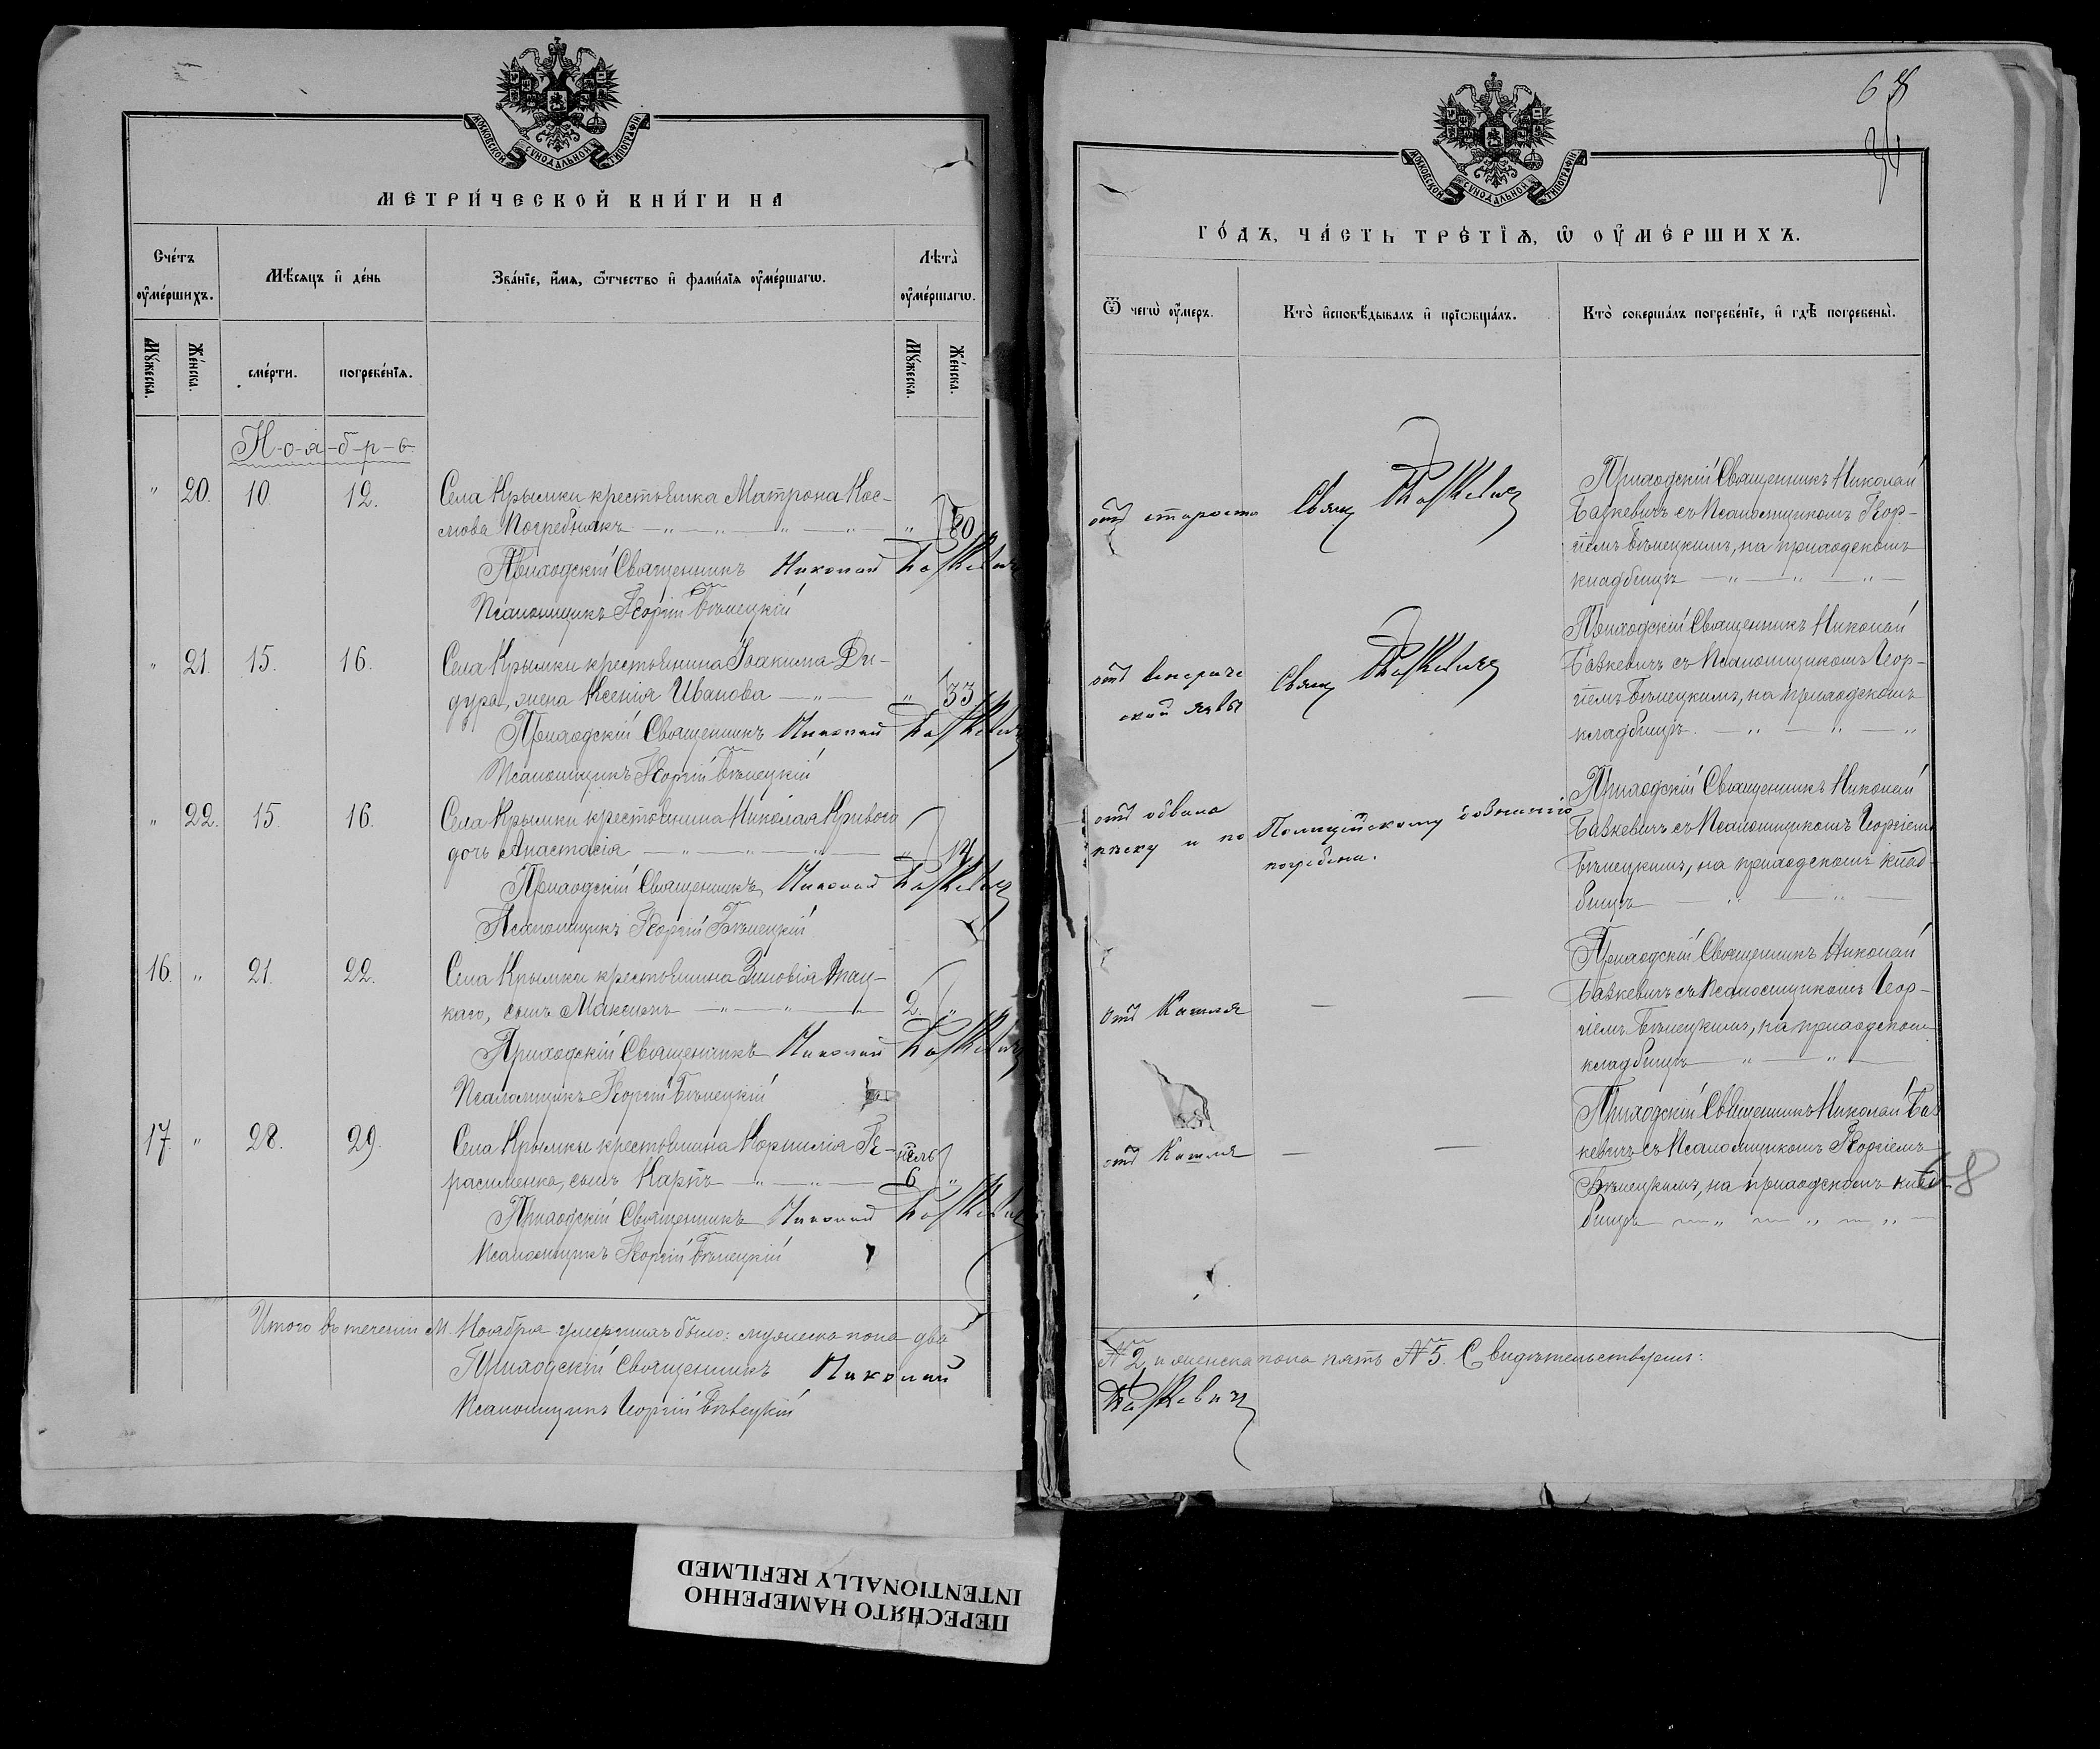 МОСКОВСКОЙ СѴНОДАЛЬНОЙ ТИПОГРАФІИ
МЕТРИ́ЧЕСКОЙ КНИ́ГИ НА
Сче́тъ оу҆ме́ршихъ.
Мѣ́сяцъ и҆ де́нь
Зва́нїе, и҆́мя, ѻ҆́тчество и҆ фами́лїя оу҆ме́ршагѡ.
Лѣта̀ оу҆ме́ршагѡ.
Мꙋ́жеска.
Же́нска.
сме́рти.
погребе́нїя.
Мꙋ́жеска.
Же́нска.
Н-о-я-б-р-ь
" 20. 10. 12. Села Крымки крестьянка Матрона Кос-
мова Погребнякъ — " — " — " — " — " 80
Приходскій Священникъ Николай Базкевичъ
Псаломщикъ Георгій Бѣлецкій
" 21 15. 16. Села Крымки крестьянина Іоакима Ди-
дура, жена Ксенія Иванова — " — " 33
Приходскій Священникъ Николай Базкевичъ
Псаломщикъ Георгій Бѣлецкій
" 22. 15. 16. Села Крымки крестьянина Николая Кривого
дочь Анастасія — " — " — " — " 14
Приходскій Священникъ Николай Базкевичъ
Псаломщикъ Георгій Бѣлецкій
16. " 21. 22. Села Крымки крестьянина Зиновія
каго, сынъ Максимъ — " — " — 2. "
Приходскій Священникъ Николай Базкевичъ
Псаломщикъ Георгій Бѣлецкій
17. " 28. 29. Села Крымки крестьянина Корнилія Ге-
расименка, сынъ Карпъ — " — " — 6 "
Приходскій Священникъ Николай Базкевичъ
Псаломщикъ Георгій Бѣлецкій
Итого въ теченіи М. Ноября умершихъ было: мужеска пола два
Приходскій Священникъ Николай
Псаломщикъ Георгій Бѣлецкій
68
МОСКОВСКОЙ СѴНОДАЛЬНОЙ ТИПОГРАФІИ
ГО́ДЪ, ЧА́СТЬ ТРЕ́ТЇЯ, Ѽ ОУ҆МЕ́РШИХЪ.
Ѿ чегѡ̀ оу҆́меръ.
Кто̀ и҆сповѣ́дывалъ и҆ прїѡбща́лъ.
Кто̀ соверша́лъ погребе́нїе, и҆ гдѣ̀ погребены̀.
отъ старости Свящ Базкевичъ
Приходскій Священникъ Николай
Базкевичъ съ Псаломщикомъ Геор-
гіемъ Бѣлецкимъ, на приходскомъ
кладбищѣ — " — " — " —
отъ венериче
ской язвы Свящ Базкевичъ
Приходскій Священникъ Николай
Базкевичъ съ Псаломщикомъ Геор-
гіемъ Бѣлецкимъ, на приходскомъ
кладбищѣ. — " — " — "
отъ обвала
песку и по Полицейскому дознанію
погребена.
Приходскій Священникъ Николай
Базкевичъ съ Псаломщикомъ Георгіемъ
Бѣлецкимъ, на приходскомъ клад-
бищѣ — " — " —
отъ Кашля — —
Приходскій Священникъ Николай
Базкевичъ съ Псаломщикомъ Геор-
гіемъ Бѣлецкимъ, на приходскомъ
кладбищѣ — " — " —
отъ Кашля — —
Приходскій Священникъ Николай Баз
кевичъ съ Псаломщикомъ Георгіемъ
Бѣлецкимъ, на приходскомъ клад
бищѣ — " — " — " —
68
№ 2, и женска пола пять № 5. Свидѣтельствуемъ:
Базкевичъ
ПЕРЕСНЯТО НАМЕРЕННО
INTENTIONALLY REFILMED